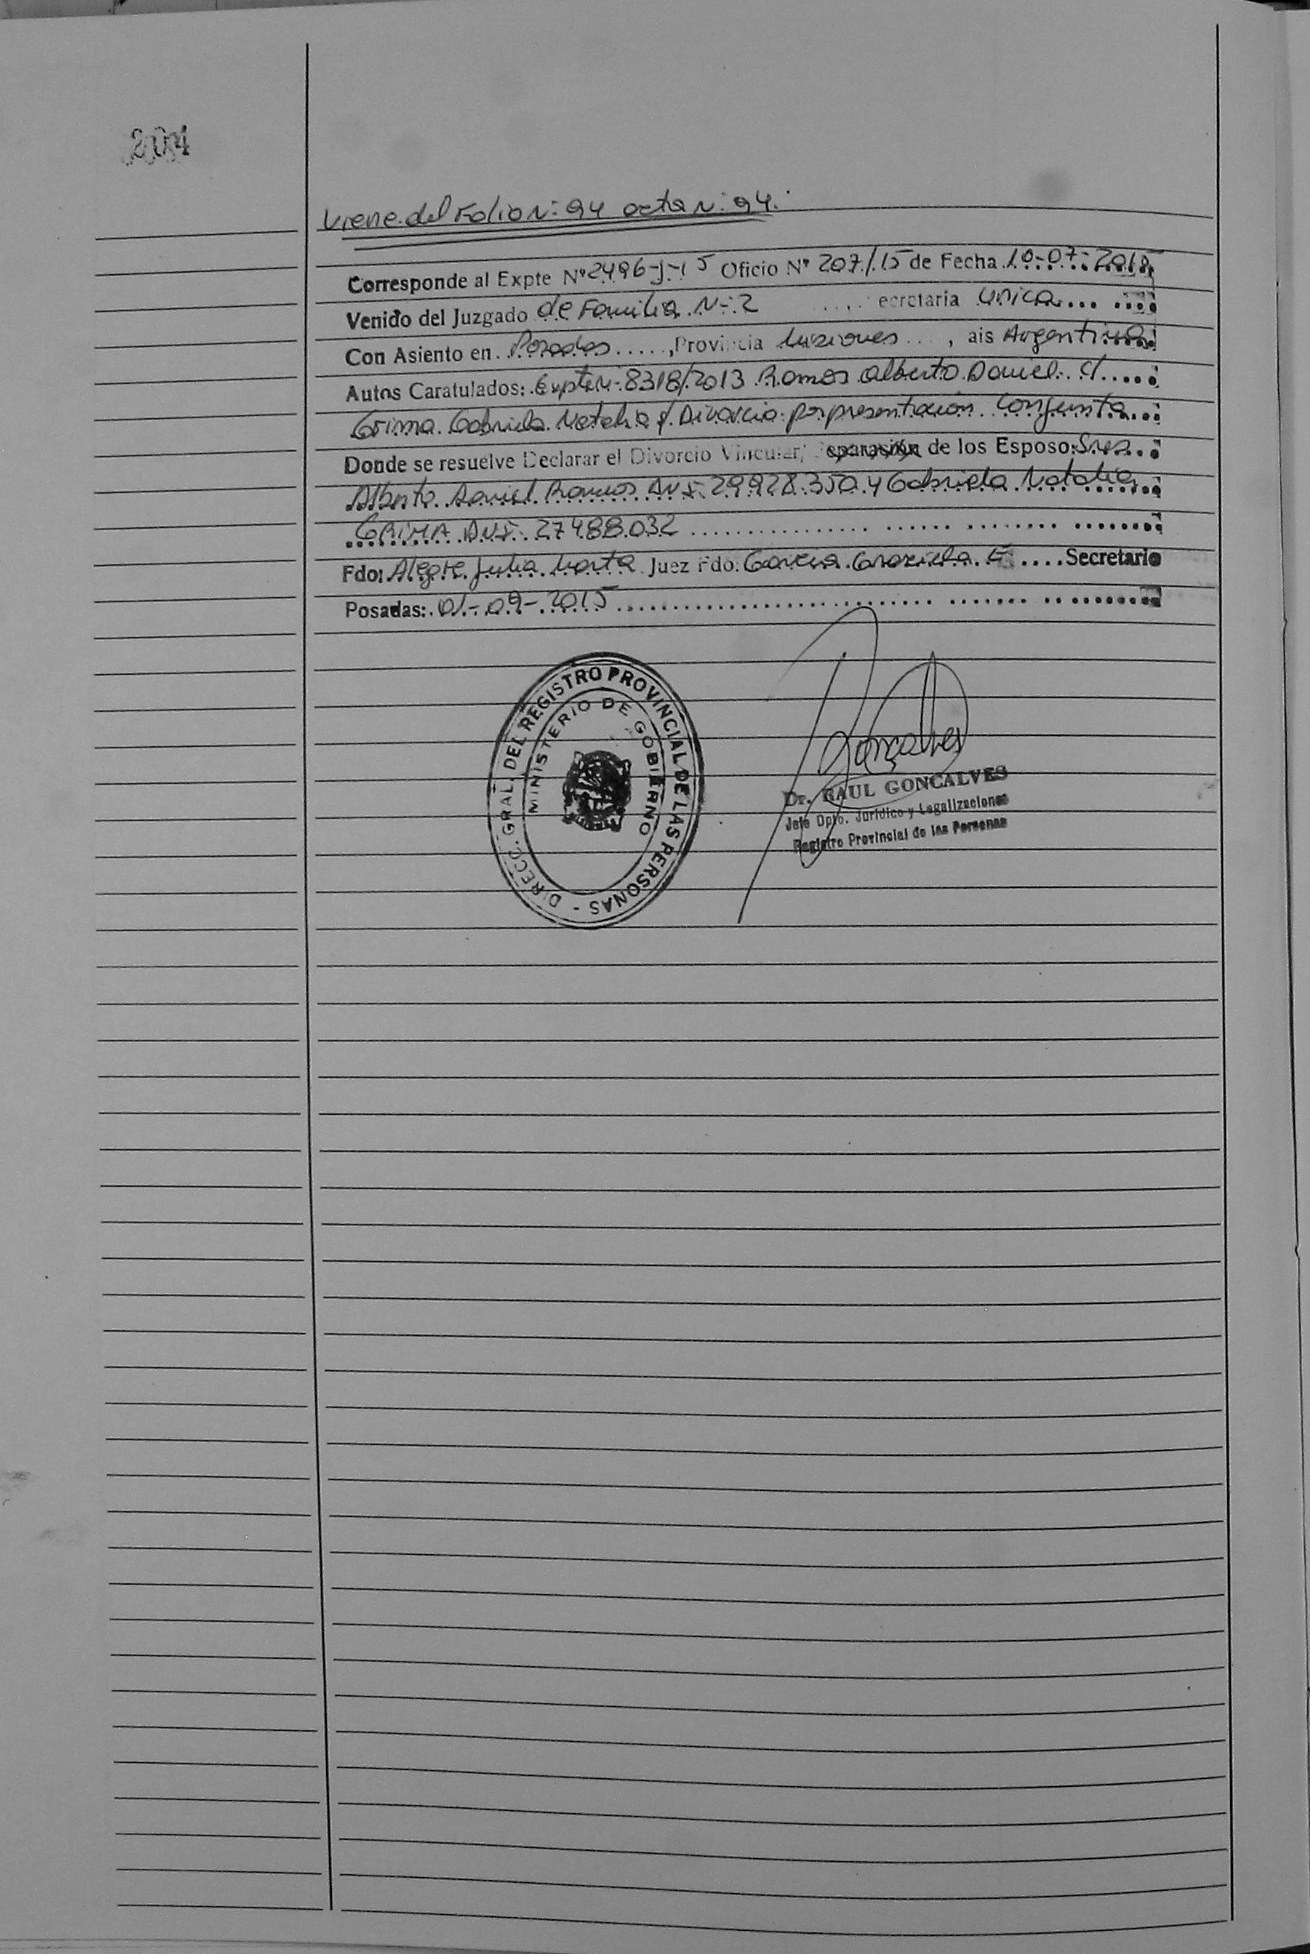 204
Viene del Folio N: 94 acta N: 94.
Corresponde al Expte Nº 2496-J-15 Oficio Nº 207/15 de Fecha 10-07-2015
Venido del Juzgado de Familia N-2 ecretaria unica
Con Asiento en Posadas, Provincia Misiones, ais Argentina
Autos Caratulados: Expte N-8318/2013 Ramos Alberto Daniel c/
Grima Gabriela Natalia s/ Divorcio por presentación Conjunta
Donde se resuelve Declarar el Divorcio Vincular, eparasión de los Esposo: Sres
Alberto Daniel Ramos DNI: 29.928.350 y Gabriela Natalia
GRIMA DNI: 27.488.032
Fdo: Alegre Julia Marta Juez Fdo: Garcia Graziela E Secretario
Posadas: 01-09-2015
DIRECC. GRAL. DEL REGISTRO PROVINCIAL DE LAS PERSONAS -
MINISTERIO DE GOBIERNO
Goncalves
Dr. RAUL GONCALVES
Jefe Dpto. Jurídico y Legalizaciones
Registro Provincial de las Personas